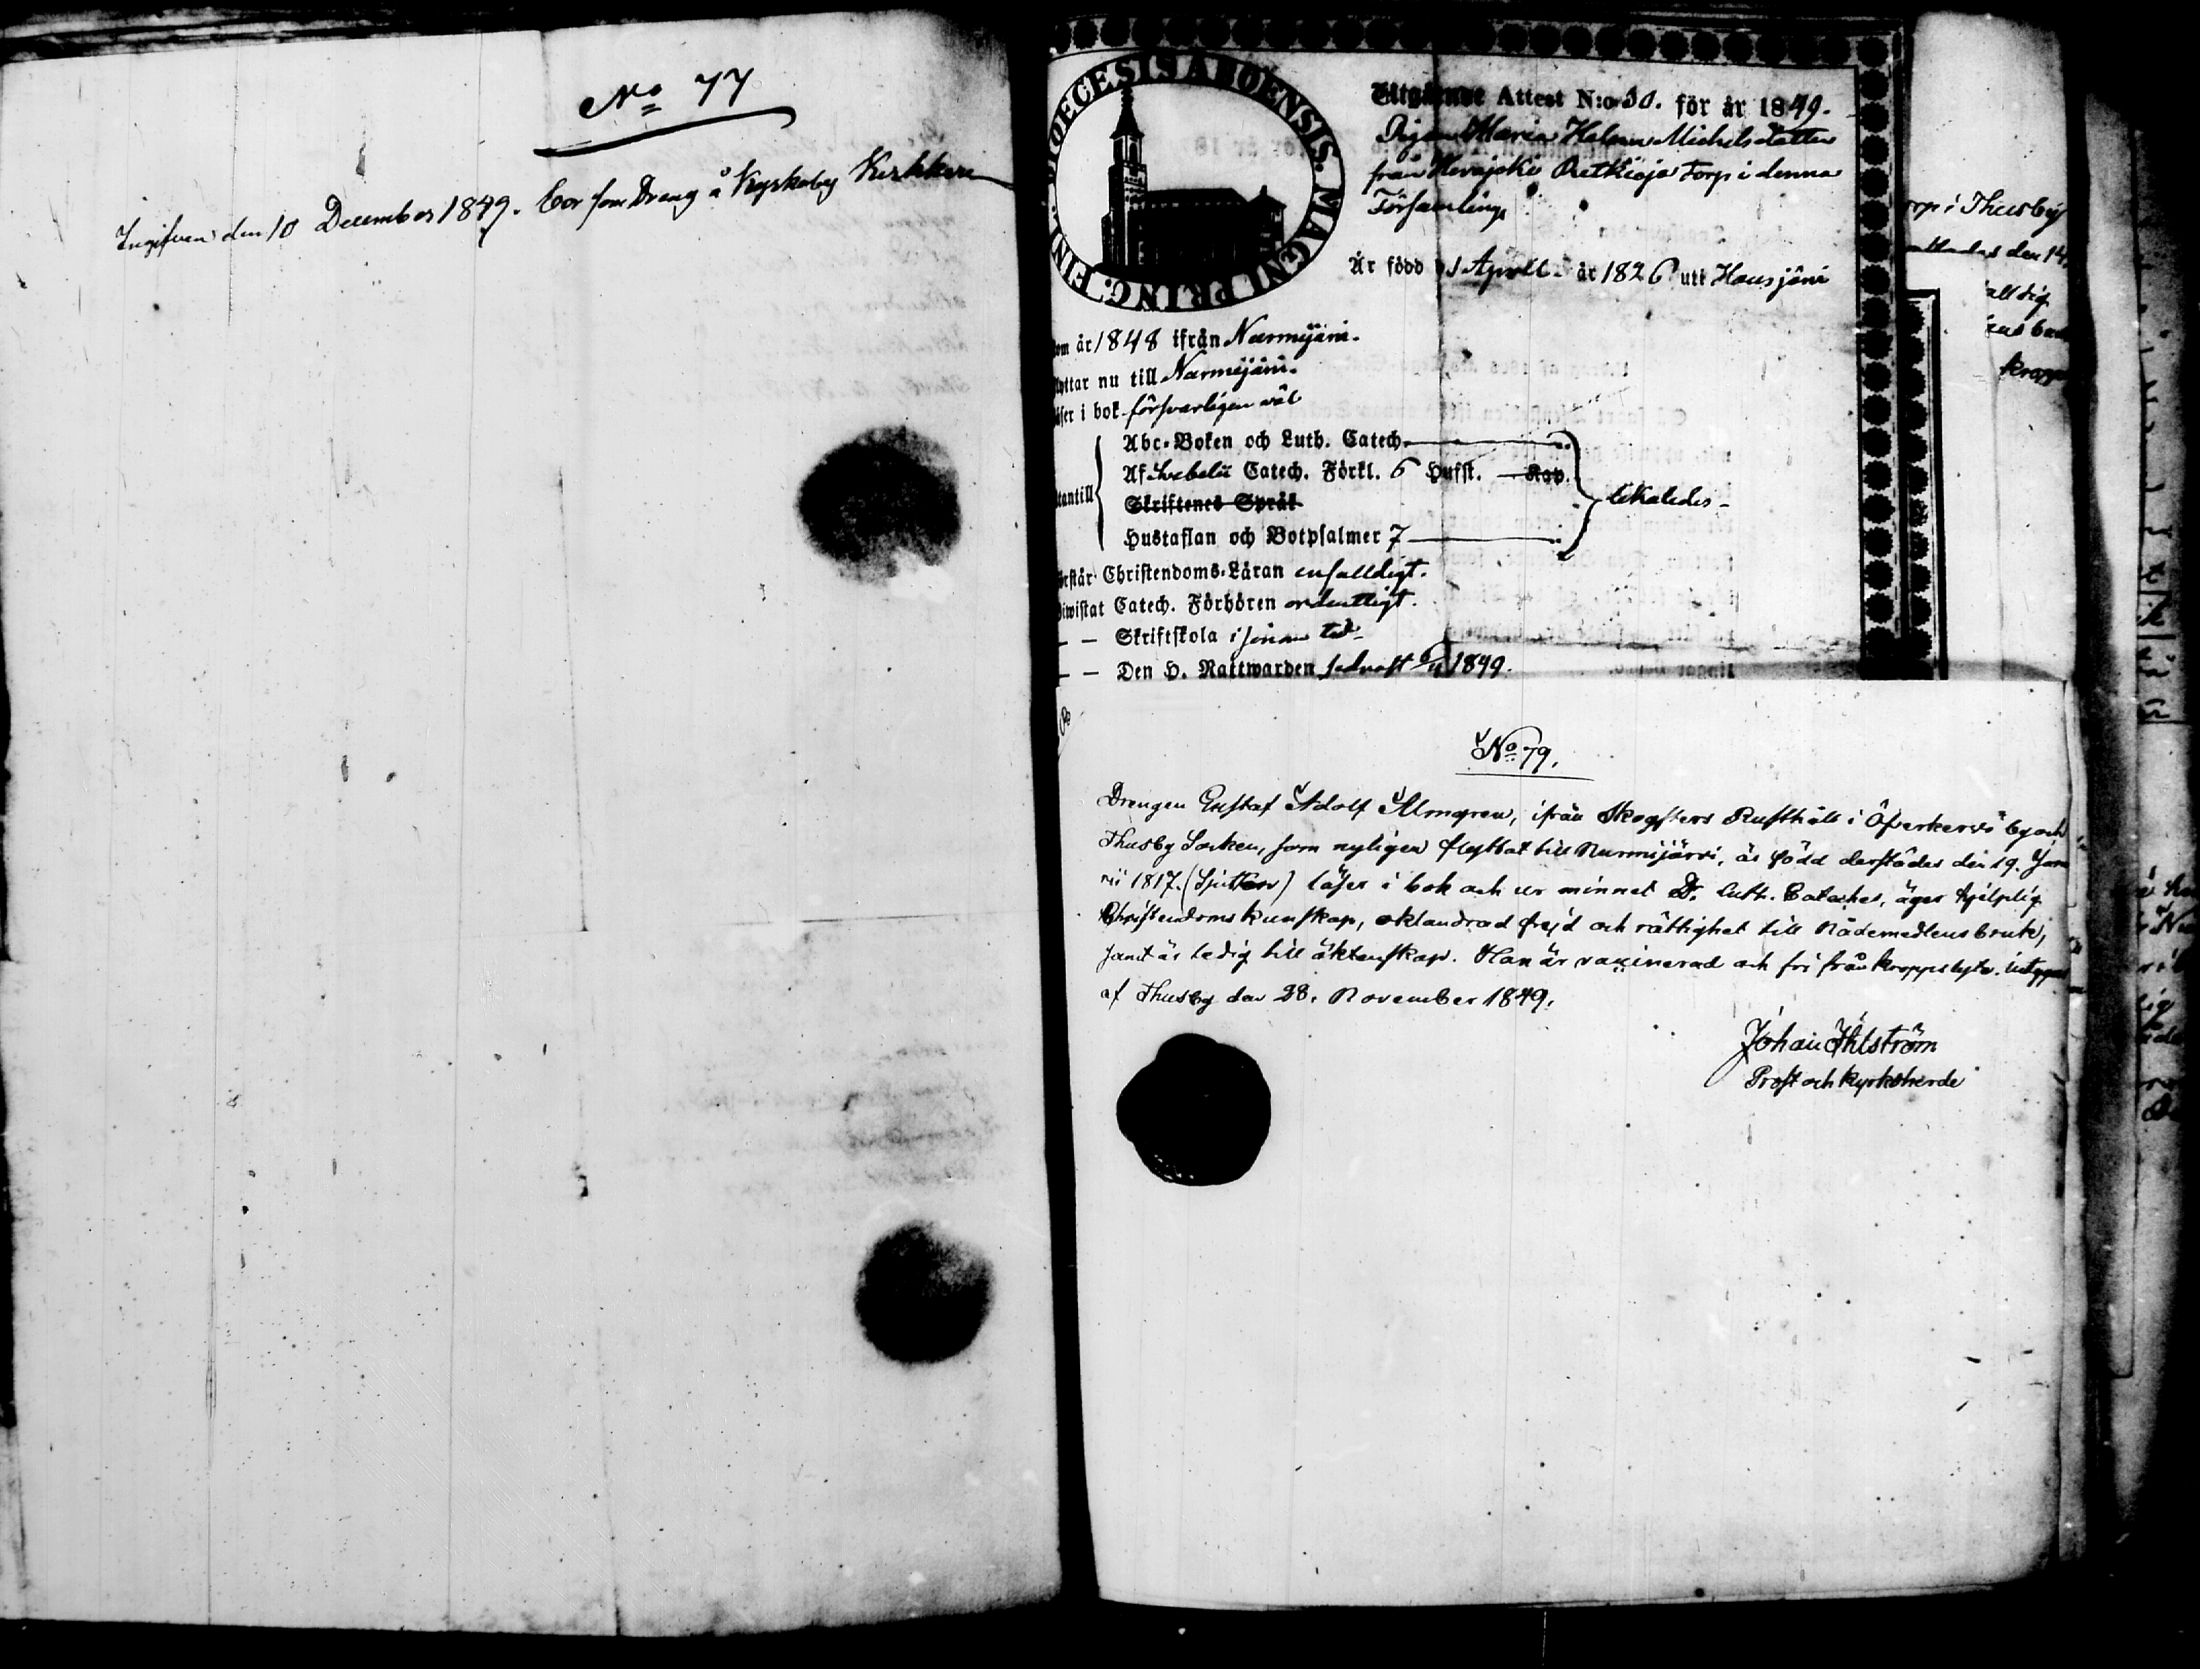 No 77
Ingifven den 10 December 1849. Bor som Dreng å Kyrkoby
DIOECESIS ABOENSIS. MAGNI PRINC. FINL.
Utgående Attest N:o 50. för år 1849.
Pigan Maria Helena Michelsdotter
från Torp i denna
Församling,
Är född 1 April år 1826 uti Hausjärvi
om år 1848 ifrån Nurmijärvi.
lyttar nu till Nurmijärvi.
äser i bok försvarligen väl
Abc-Boken och Luth. Catech.
Af Svebelii Catech. Förkl. 6 Hufst. Kap.
Skriftenes Språk
Hustaflan och Botpsalmer 7
tantill
likaledes
örstår Christendoms-Läran enfalldigt.
iwistat Catech. Förhören ordentligt.
— — Skriftskola i sinom tid
— — Den H. Nattwarden sednast 1849.
orp i Thusby
den 14
alldig
No 79.
Drengen Gustaf Adolf Almgren, ifrån Skogsters Rusthåll i Öfverkervo by och
Thusby Socken, som nyligen flyttat till Nurmijärvi, är född derstädes den 19. Janu
rii 1817. (Sjutton) läser i bok och ur minnet Dr. Luth. Cateches, äger hjelplig
Christendoms kunskap, oklandrad frejd och rättighet till Nådemedlens bruk,
samt är ledig till äktenskap. Han är vaxinerad och fri från kroppslyte.
af Thusby den 28. November 1849.
Johan Ahlström
Prost och Kyrkoherde